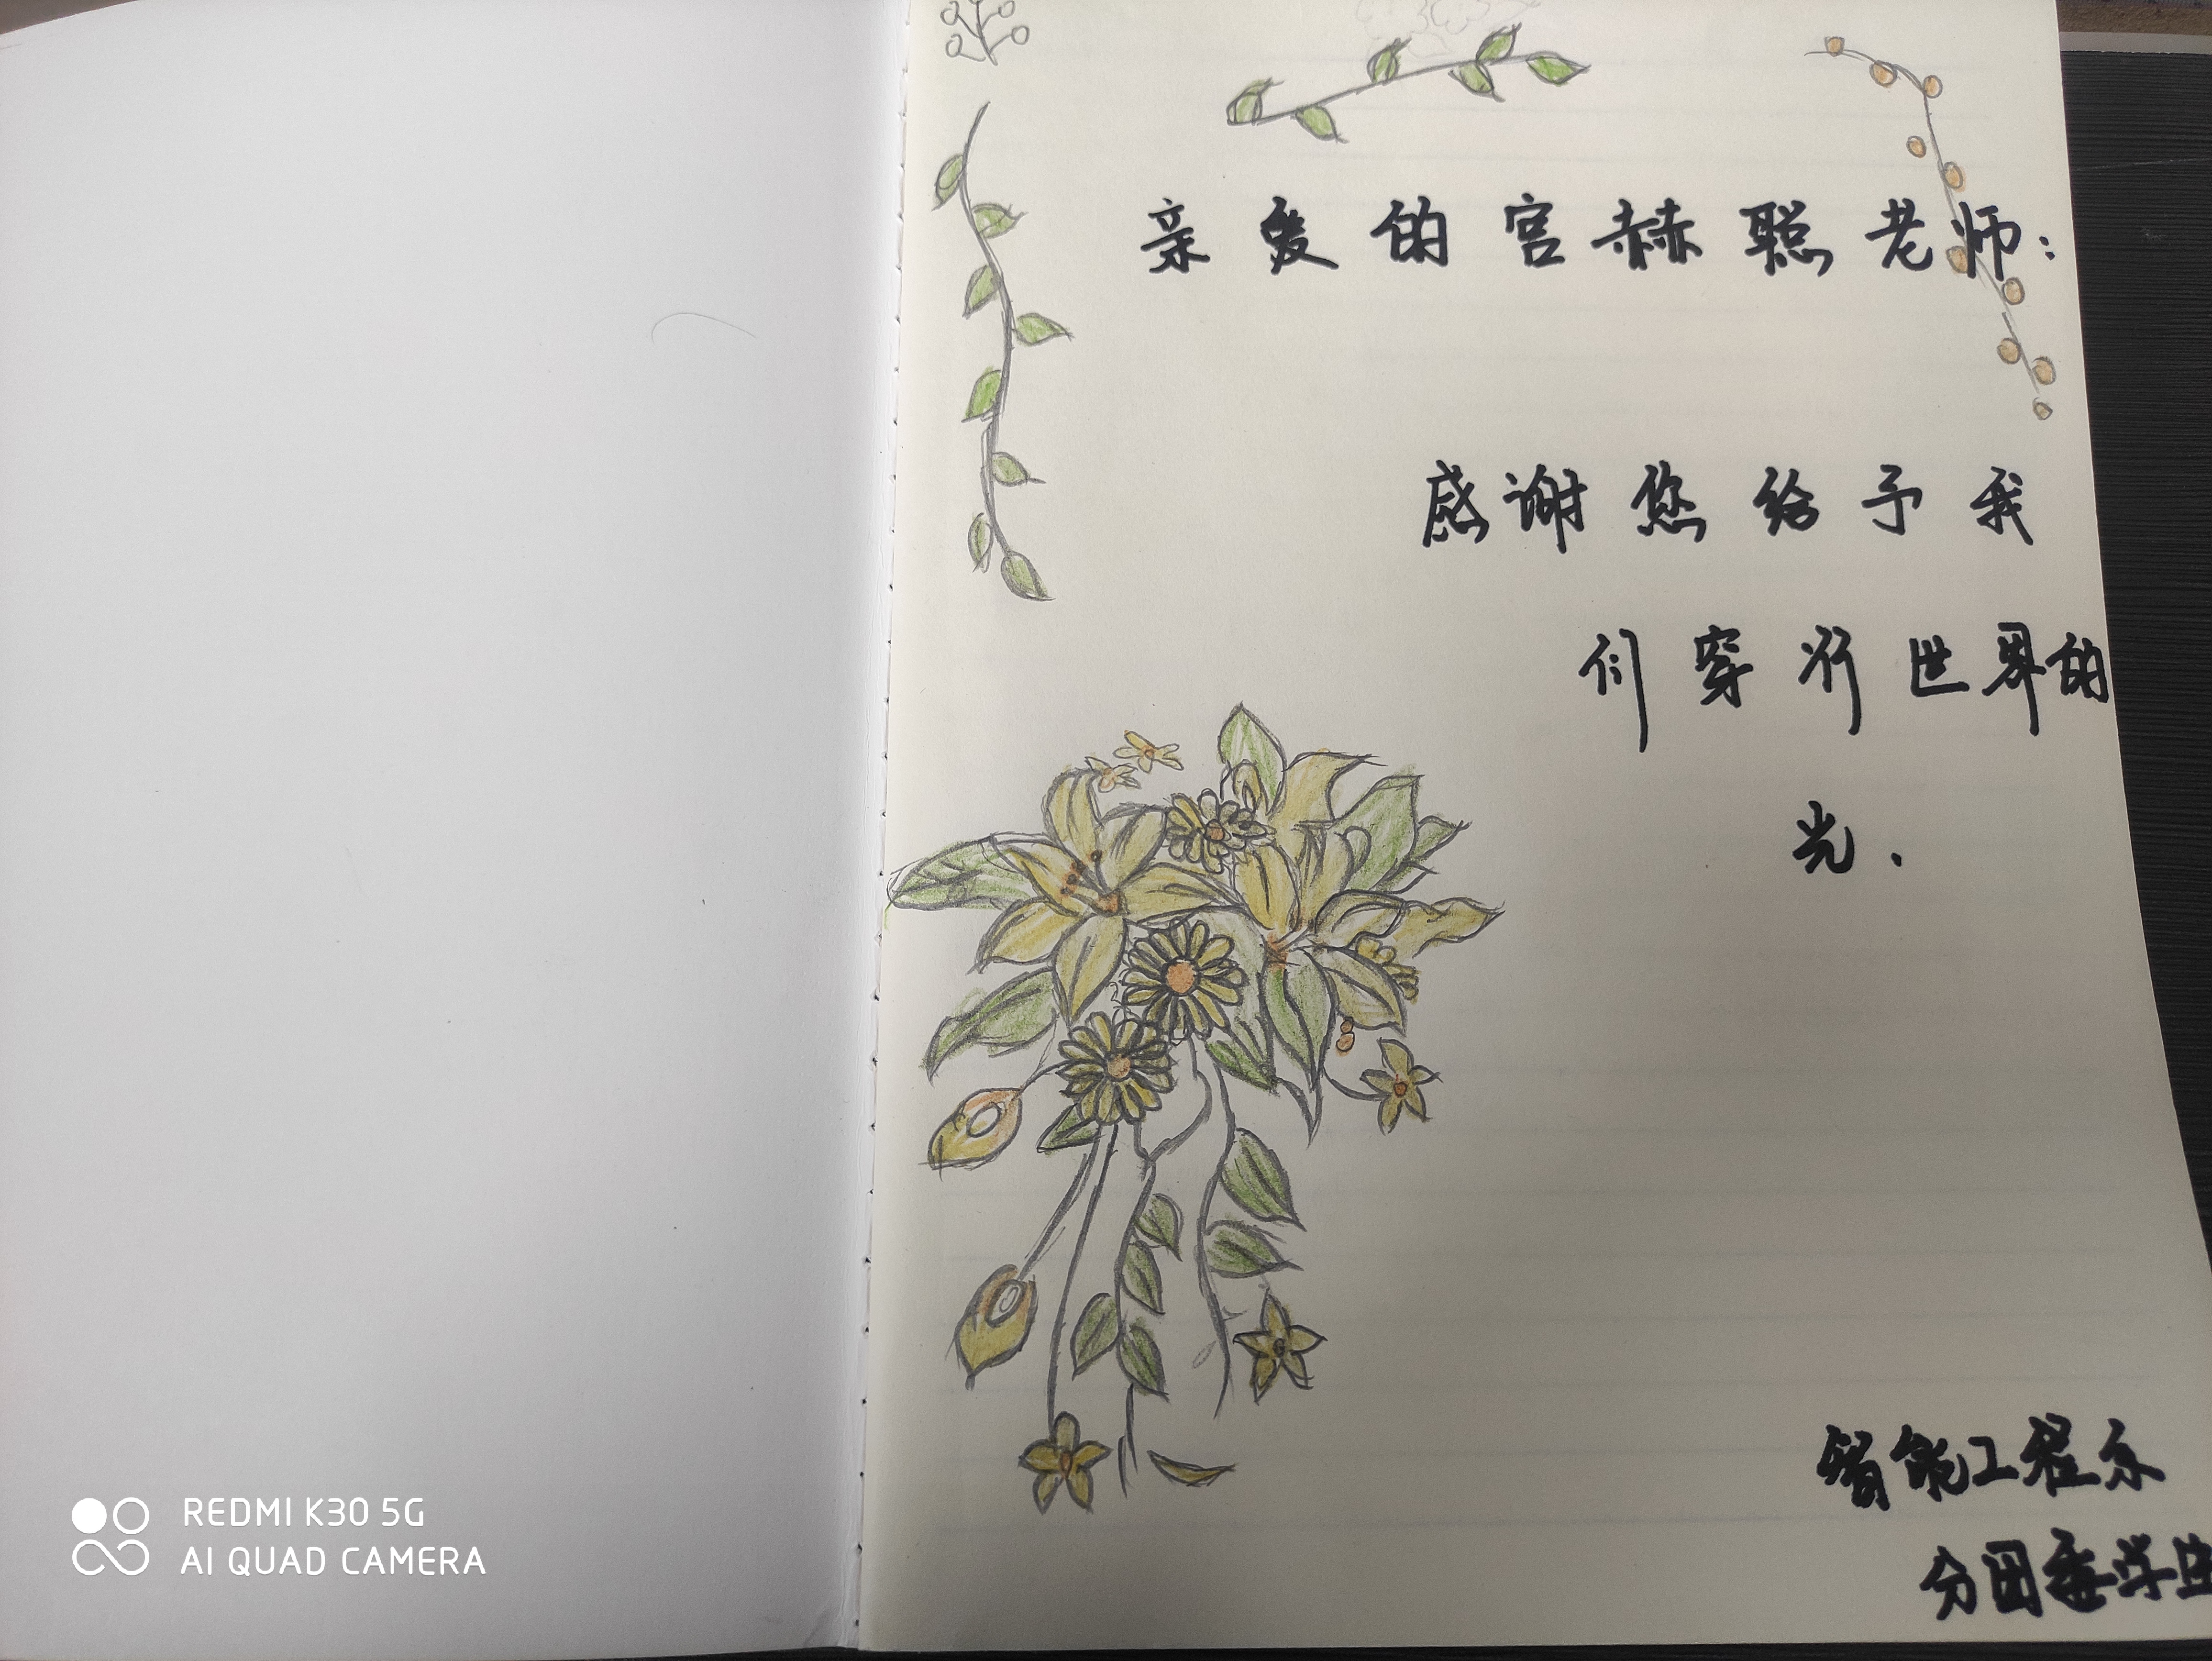 亲爱的宫赫聪老师:
感谢您给予我
们穿行世界的
光.
智能工程系
分团委学生
REDMI K30 5G
AI QUAD CAMERA